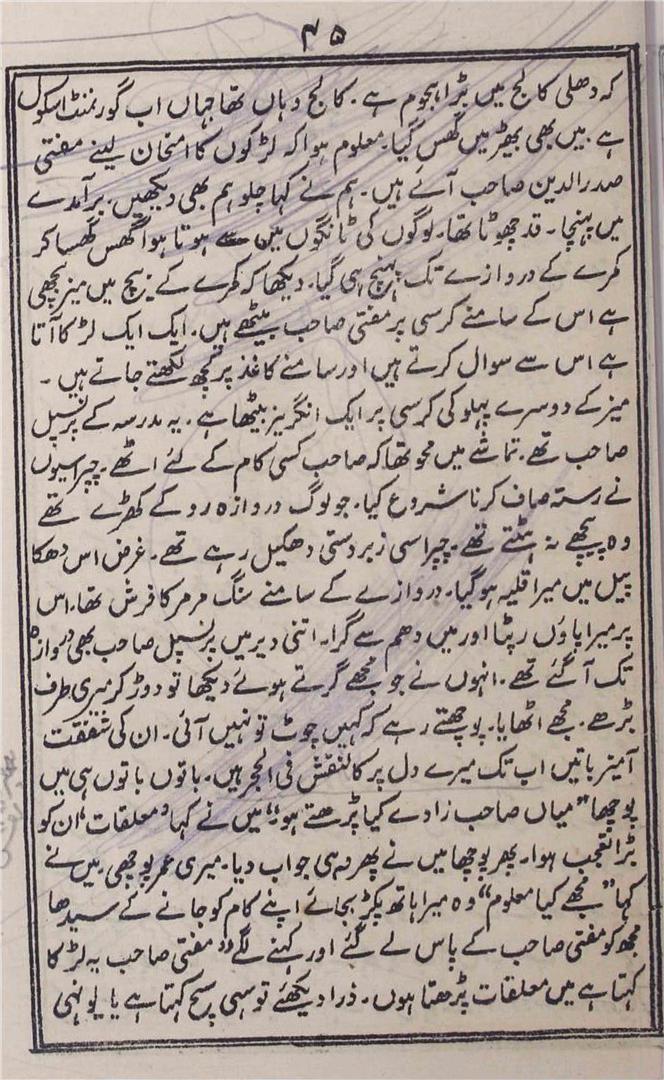 ۴۵
کہ دھلی کالج میں بڑا ہجوم ہے۔ کالج وہاں تھا جہاں اب گورنمنٹ اسکول
ہے۔ میں بھی بھیڑ میں گھس گیا۔ معلوم ہوا کہ لڑکوں کا امتحان لینے مفتی
صدرالدین صاحب آئے ہیں۔ ہم نے کہا چلو ہم بھی دیکھیں۔ برآمدے
میں پہنچا۔ قد چھوٹا تھا۔ لوگوں کی ٹانگوں میں سے ہوتا ہوا گھس گھسا کر
کمرے کے دروازے تک پہنچ ہی گیا۔ دیکھا کہ کمرے کے بیچ میں میز بچھی
ہے اس کے سامنے کرسی پر مفتی صاحب بیٹھے ہیں۔ ایک ایک لڑکا آتا
ہے اس سے سوال کرتے ہیں اور سامنے کاغذ پر کچھ لکھتے جاتے ہیں۔
میز کے دوسرے پہلو کی کرسی پر ایک انگریز بیٹھا ہے۔ یہ مدرسہ کے پرنسپل
صاحب تھے۔ تماشے میں محو تھا کہ صاحب کسی کام کے لئے اٹھے۔ چپراسیوں
نے رستہ صاف کرنا شروع کیا۔ جو لوگ دروازہ روکے کھڑے تھے
وہ پیچھے نہ ہٹتے تھے۔ چپراسی زبردستی دھکیل رہے تھے۔ غرض اس دھکا
پیل میں میرا قلیہ ہو گیا۔ دروازے کے سامنے سنگ مرمر کا فرش تھا۔ اس
پر میرا پاؤں رپٹا اور میں دھم سے گرا۔ اتنی دیر میں پرنسپل صاحب بھی دروازہ
تک آ گئے تھے۔ انہوں نے جو مجھے گرتے ہوئے دیکھا تو دوڑ کر میری طرف
بڑھے۔ مجھے اٹھایا۔ پوچھتے رہے کہ کہیں چوٹ تو نہیں آئی۔ ان کی شفقت
آمیز باتیں اب تک میرے دل پر کالنقش فی الحجر ہیں۔ باتوں باتوں ہی میں
پوچھا "میاں صاحب زادے کیا پڑھتے ہو" میں نے کہا "معلقات" ان کو
بڑا تعجب ہوا۔ پھر پوچھا میں نے پھر وہی جواب دیا۔ میری عمر پوچھی میں نے
کہا "مجھے کیا معلوم" وہ میرا ہاتھ پکڑ بجائے اپنے کام کو جانے کے سیدھا
مجھ کو مفتی صاحب کے پاس لے گئے اور کہنے لگے "مفتی صاحب یہ لڑکا
کہتا ہے میں معلقات پڑھتا ہوں۔ ذرا دیکھئے تو سہی سچ کہتا ہے یا یونہی